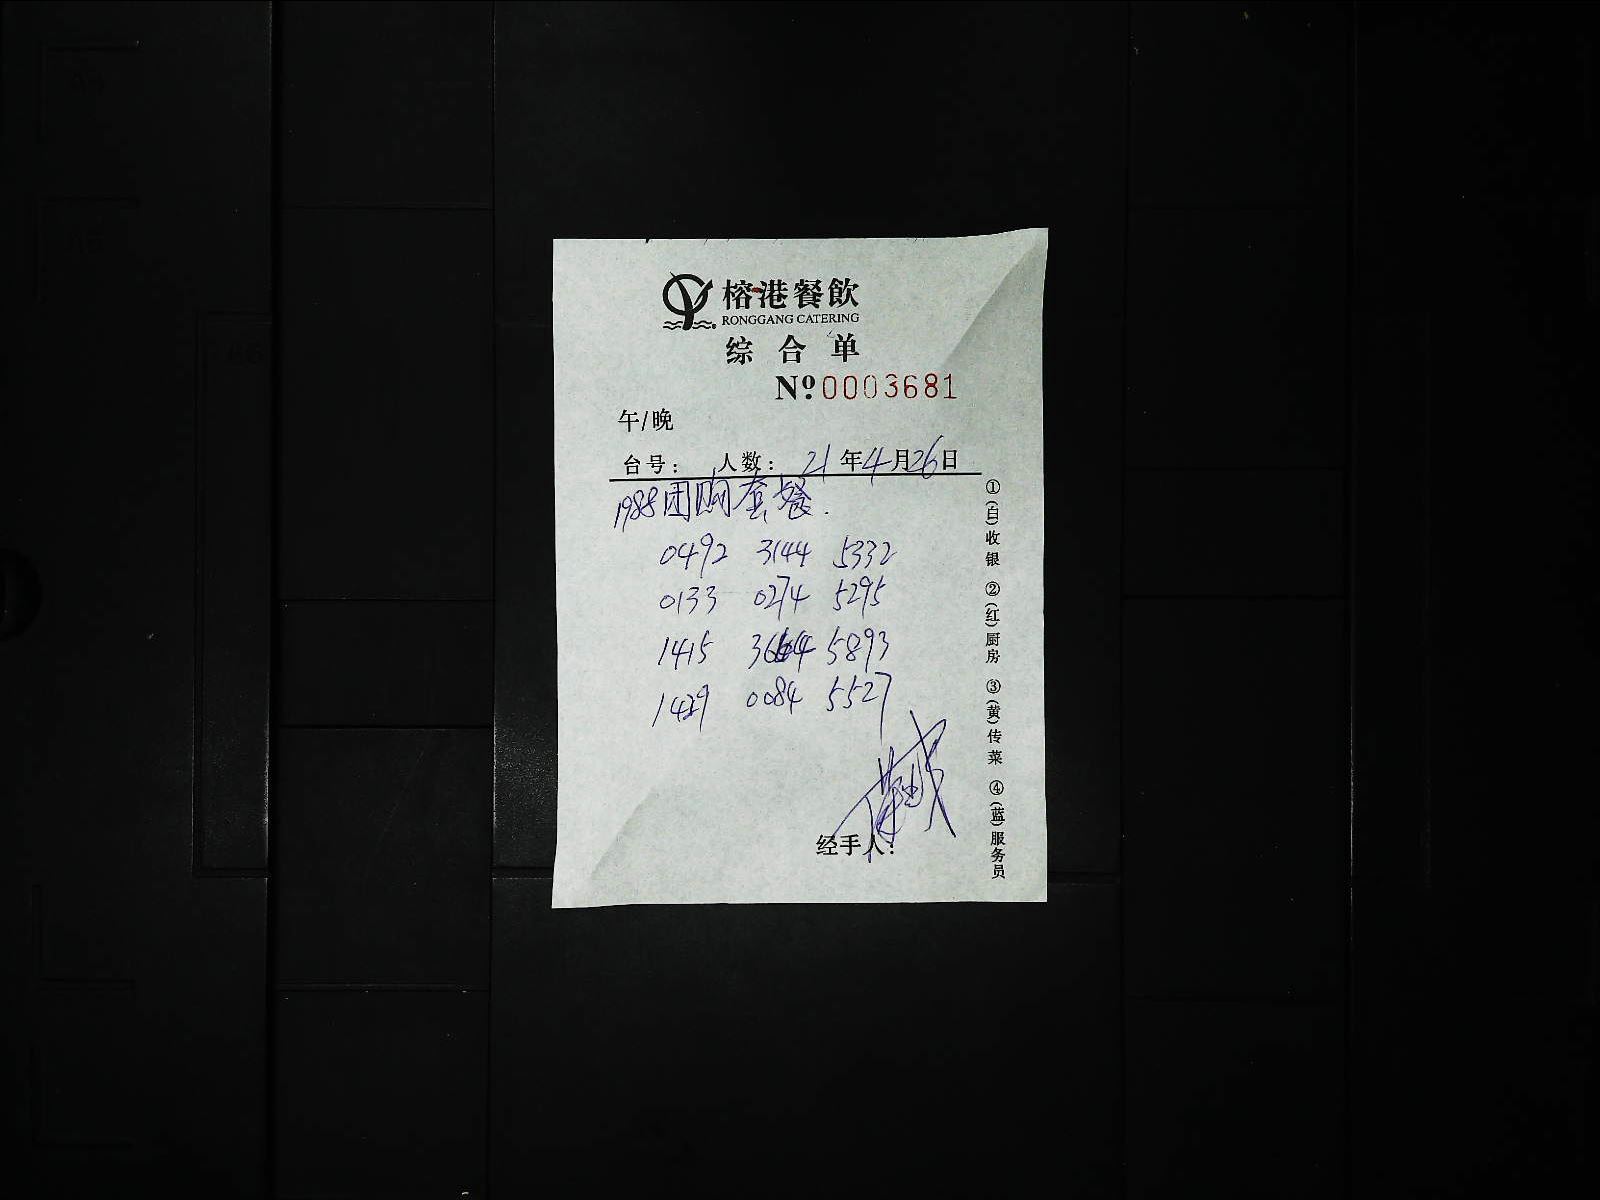 榕港餐飲
RONGGANG CATERING
综合单
Nº 0003681
午/晚
台号： 人数： 21年4月26日
1988团购套餐.
0492 3144 5332
0133 0274 5295
1415 3664 5893
1429 0084 5527
经手人：
①(白)收银 ②(红)厨房 ③(黄)传菜 ④(蓝)服务员